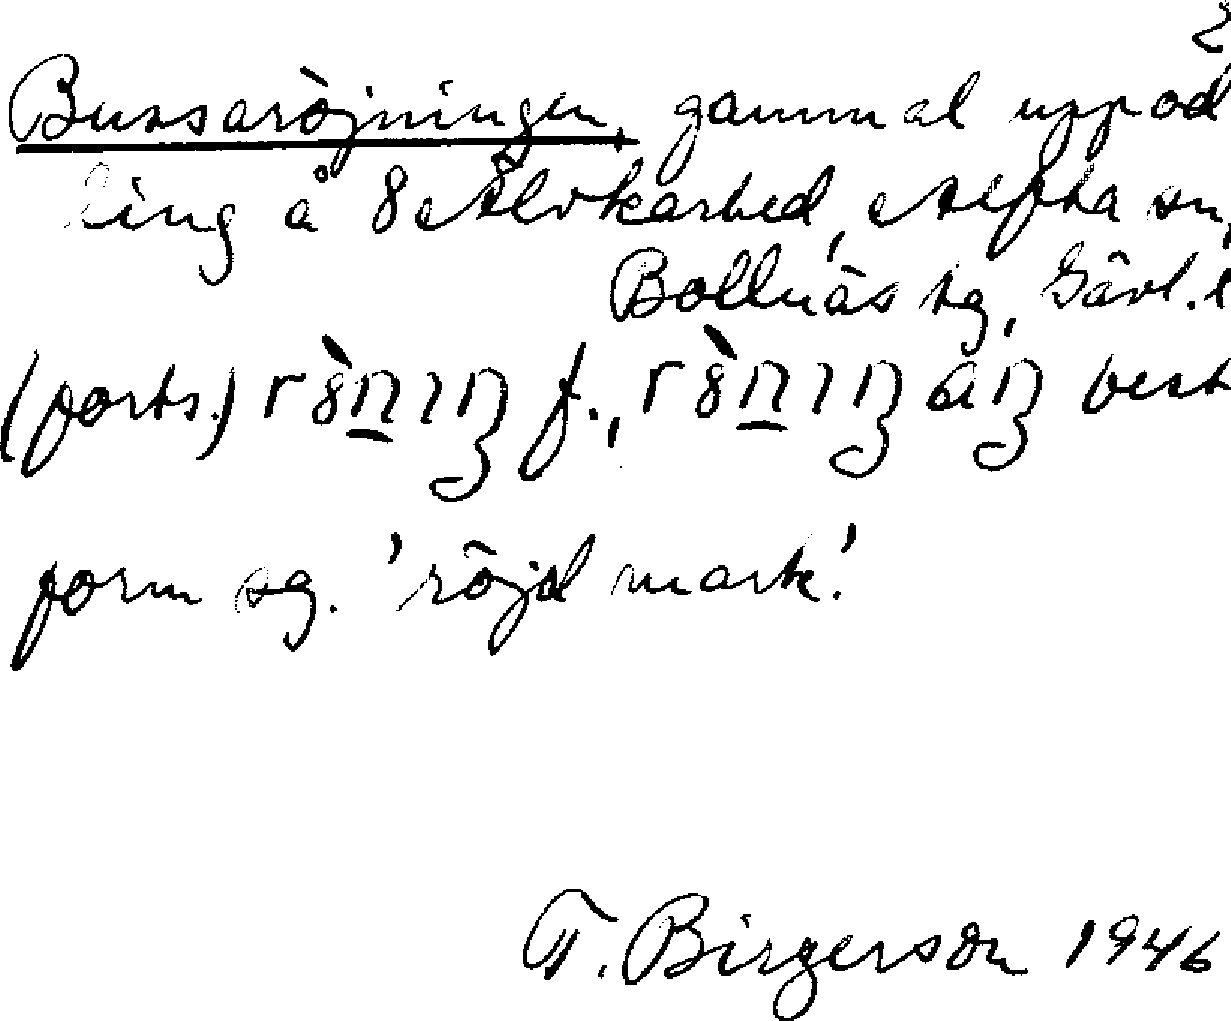 2
Bussaröjningen, gammal uppod
ling å 8 Älvkarhed, Alfta sn,
Bollnäs tg, Gävl. l
(forts.) f., best
form sg. 'röjd mark'.
F. Birgerson 1946